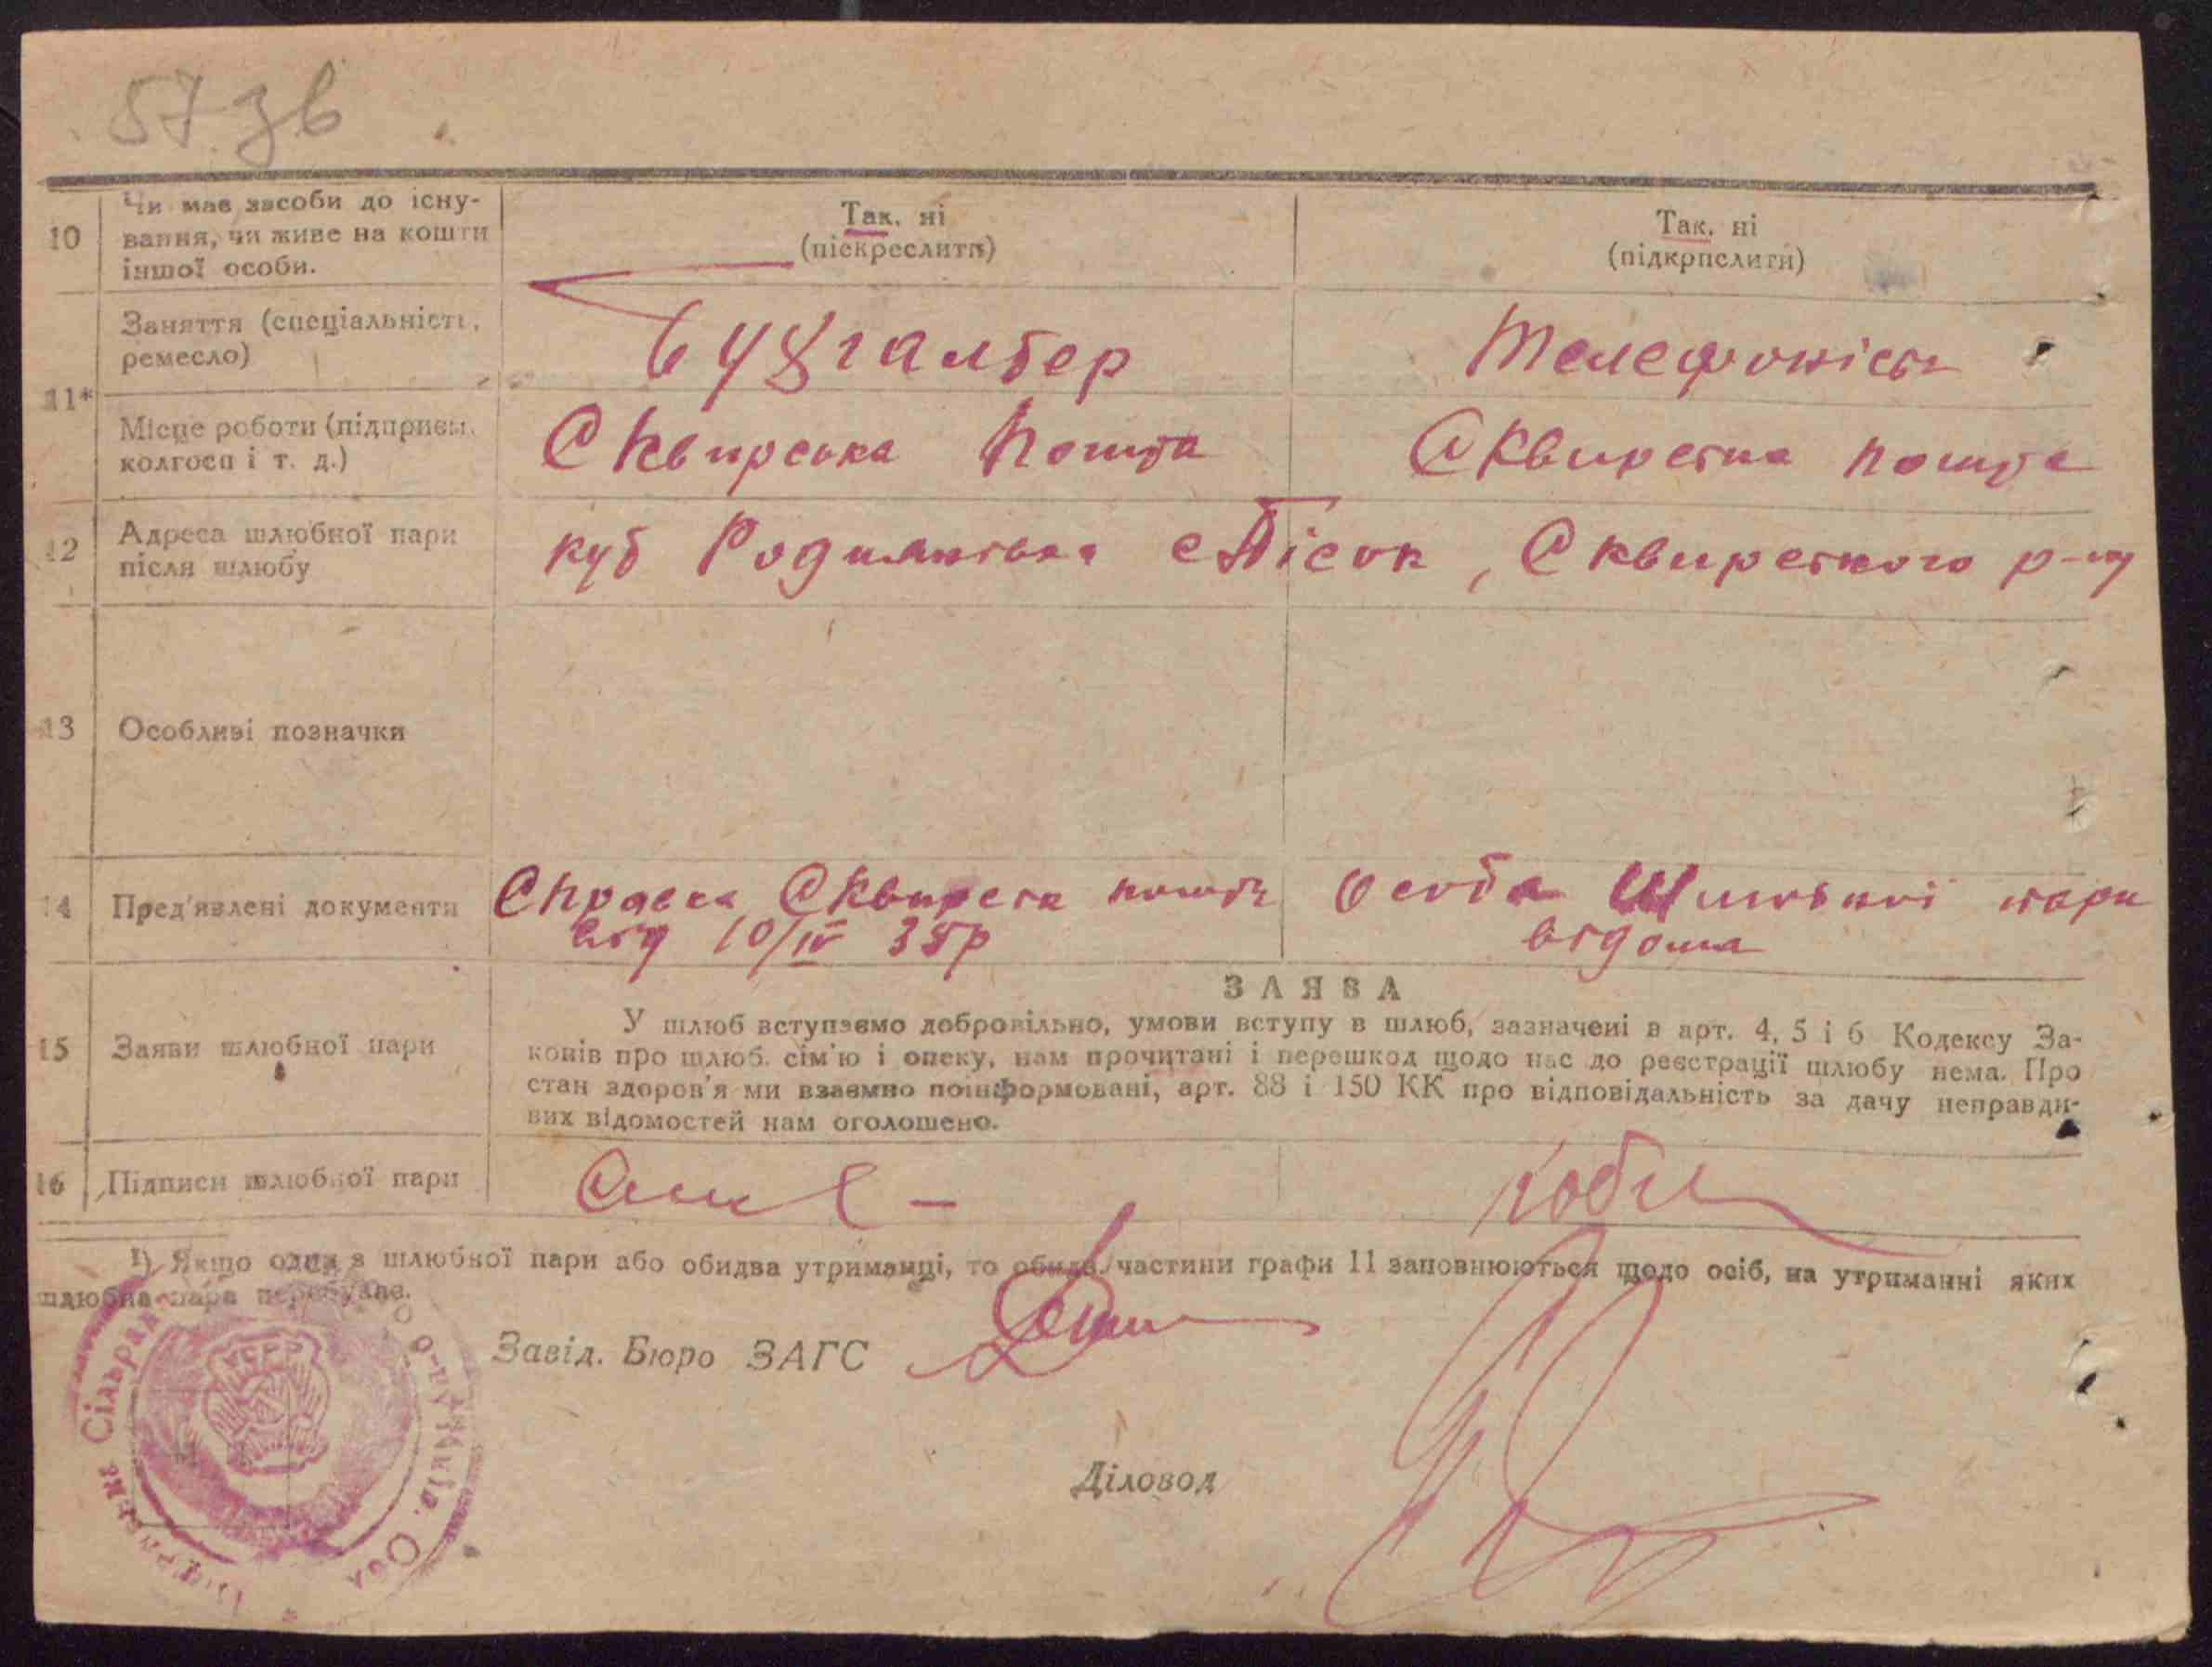 57 зв
10 Чи має засоби до існу-
вання, чи живе на кошти
іншої особи.
Так, ні
(піскреслити)
Так, ні
(підкрпслити)
11*
Заняття (спеціальність,
ремесло)
бухгалтер
Телефоніст
Місце роботи (підприєм.
колгосп і т. д.)
Сквирська Пошта
Сквирська пошта
12 Адреса шлюбної пари
після шлюбу
Пісок, Сквирського р-ну
13 Особливі позначки
14 Пред'явлені документи
Справка Сквирськ пошти
від 10/IV 35р
Особа Шлюбної пари
відома
15 Заяви шлюбної пари
ЗАЯВА
У шлюб вступаємо добровільно, умови вступу в шлюб, зазначені в арт. 4, 5 і 6 Кодексу За-
конів про шлюб. сім'ю і опеку, нам прочитані і перешкод щодо нас до реєстрації шлюбу нема. Про
стан здоров'я ми взаємно поінформовані, арт. 88 і 150 КК про відповідальність за дачу неправди-
вих відомостей нам оголошено.
16 Підписи шлюбної пари
1) Якщо один з шлюбної пари або обидва утриманці, то обидві частини графи 11 заповнюються щодо осіб, на утриманні яких
шлюбна пара перебуває.
Завід. Бюро ЗАГС
Діловод
УСРР
Сільрада